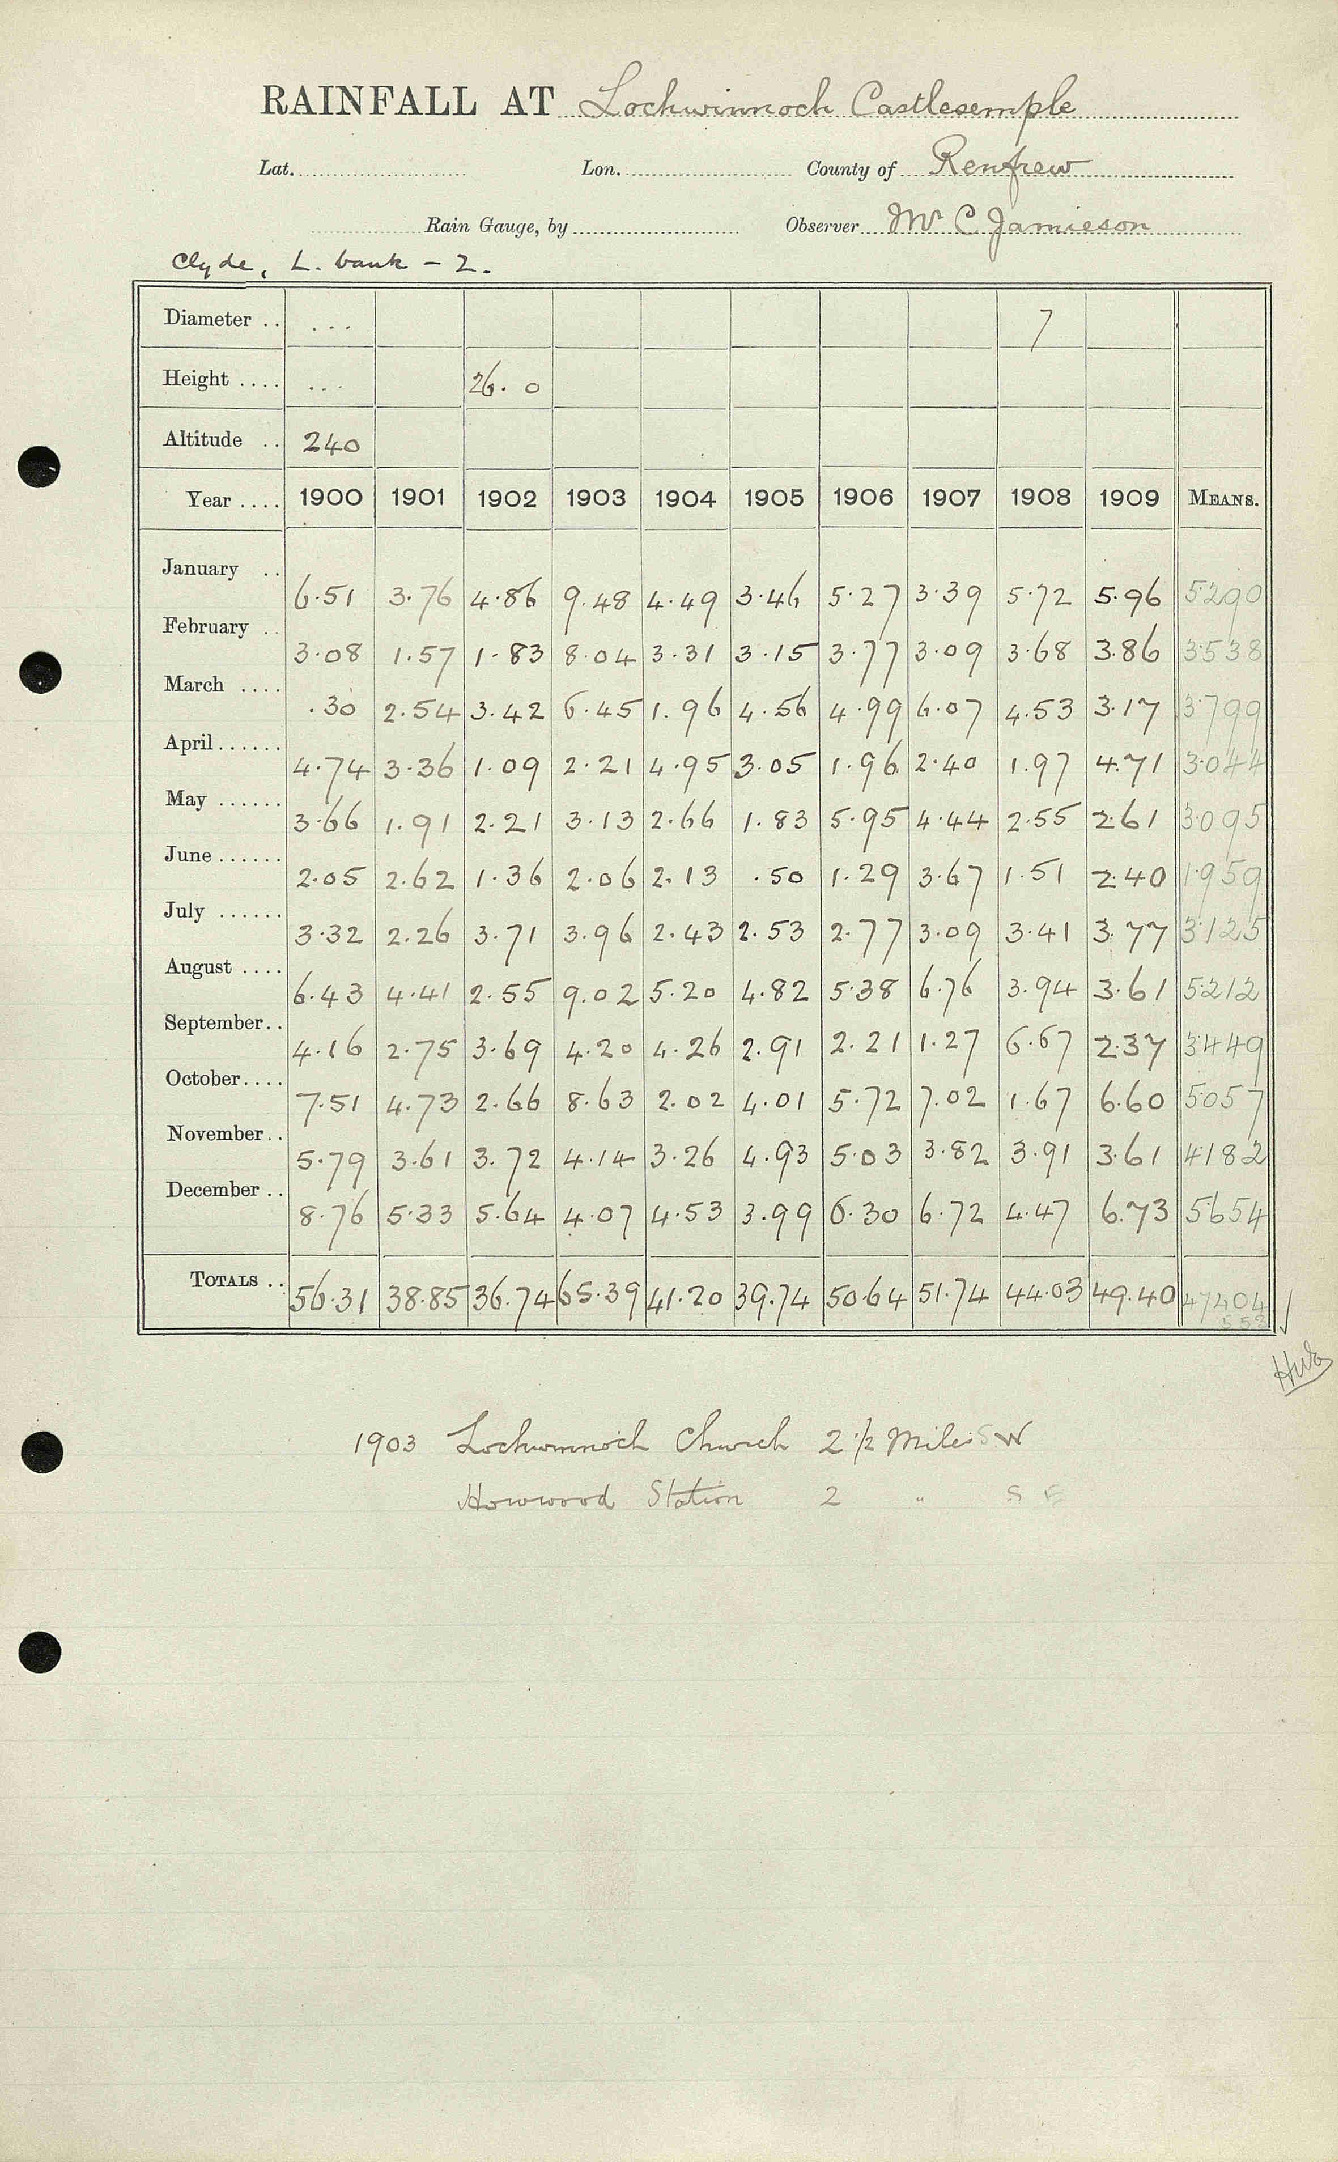 RAINFALL AT Lochwinnoch Castlesemple
Lat. Lon. County of Renfrew
Rain Gauge, by Observer Mr C Jamieson
Clyde, L. bank - 2.
Diameter .. ... 7
Height .... ... 26. 0
Altitude .. 240
Year .... 1900 1901 1902 1903 1904 1905 1906 1907 1908 1909 MEANS.
January .. 6.51 3.76 4.86 9.48 4.49 3.46 5.27 3.39 5.72 5.96 5290
February .. 3.08 1.57 1.83 8.04 3.31 3.15 3.77 3.09 3.68 3.86 3538
March .... .30 2.54 3.42 6.45 1.96 4.56 4.99 6.07 4.53 3.17 3799
April...... 4.74 3.36 1.09 2.21 4.95 3.05 1.96 2.40 1.97 4.71 3044
May ...... 3.66 1.91 2.21 3.13 2.66 1.83 5.95 4.44 2.55 2.61 3095
June...... 2.05 2.62 1.36 2.06 2.13 .50 1.29 3.67 1.51 2.40 1959
July ...... 3.32 2.26 3.71 3.96 2.43 2.53 2.77 3.09 3.41 3.77 3125
August .... 6.43 4.41 2.55 9.02 5.20 4.82 5.38 6.76 3.94 3.61 5212
September.. 4.16 2.75 3.69 4.20 4.26 2.91 2.21 1.27 6.67 2.37 3449
October.... 7.51 4.73 2.66 8.63 2.02 4.01 5.72 7.02 1.67 6.60 5057
November.. 5.79 3.61 3.72 4.14 3.26 4.93 5.03 3.82 3.91 3.61 4182
December .. 8.76 5.33 5.64 4.07 4.53 3.99 6.30 6.72 4.47 6.73 5654
TOTALS .. 56.31 38.85 36.74 65.39 41.20 39.74 50.64 51.74 44.03 49.40 47404
1903 Lochwinnoch Church 2 1/2 Miles SW
Howwood Station 2 " S E